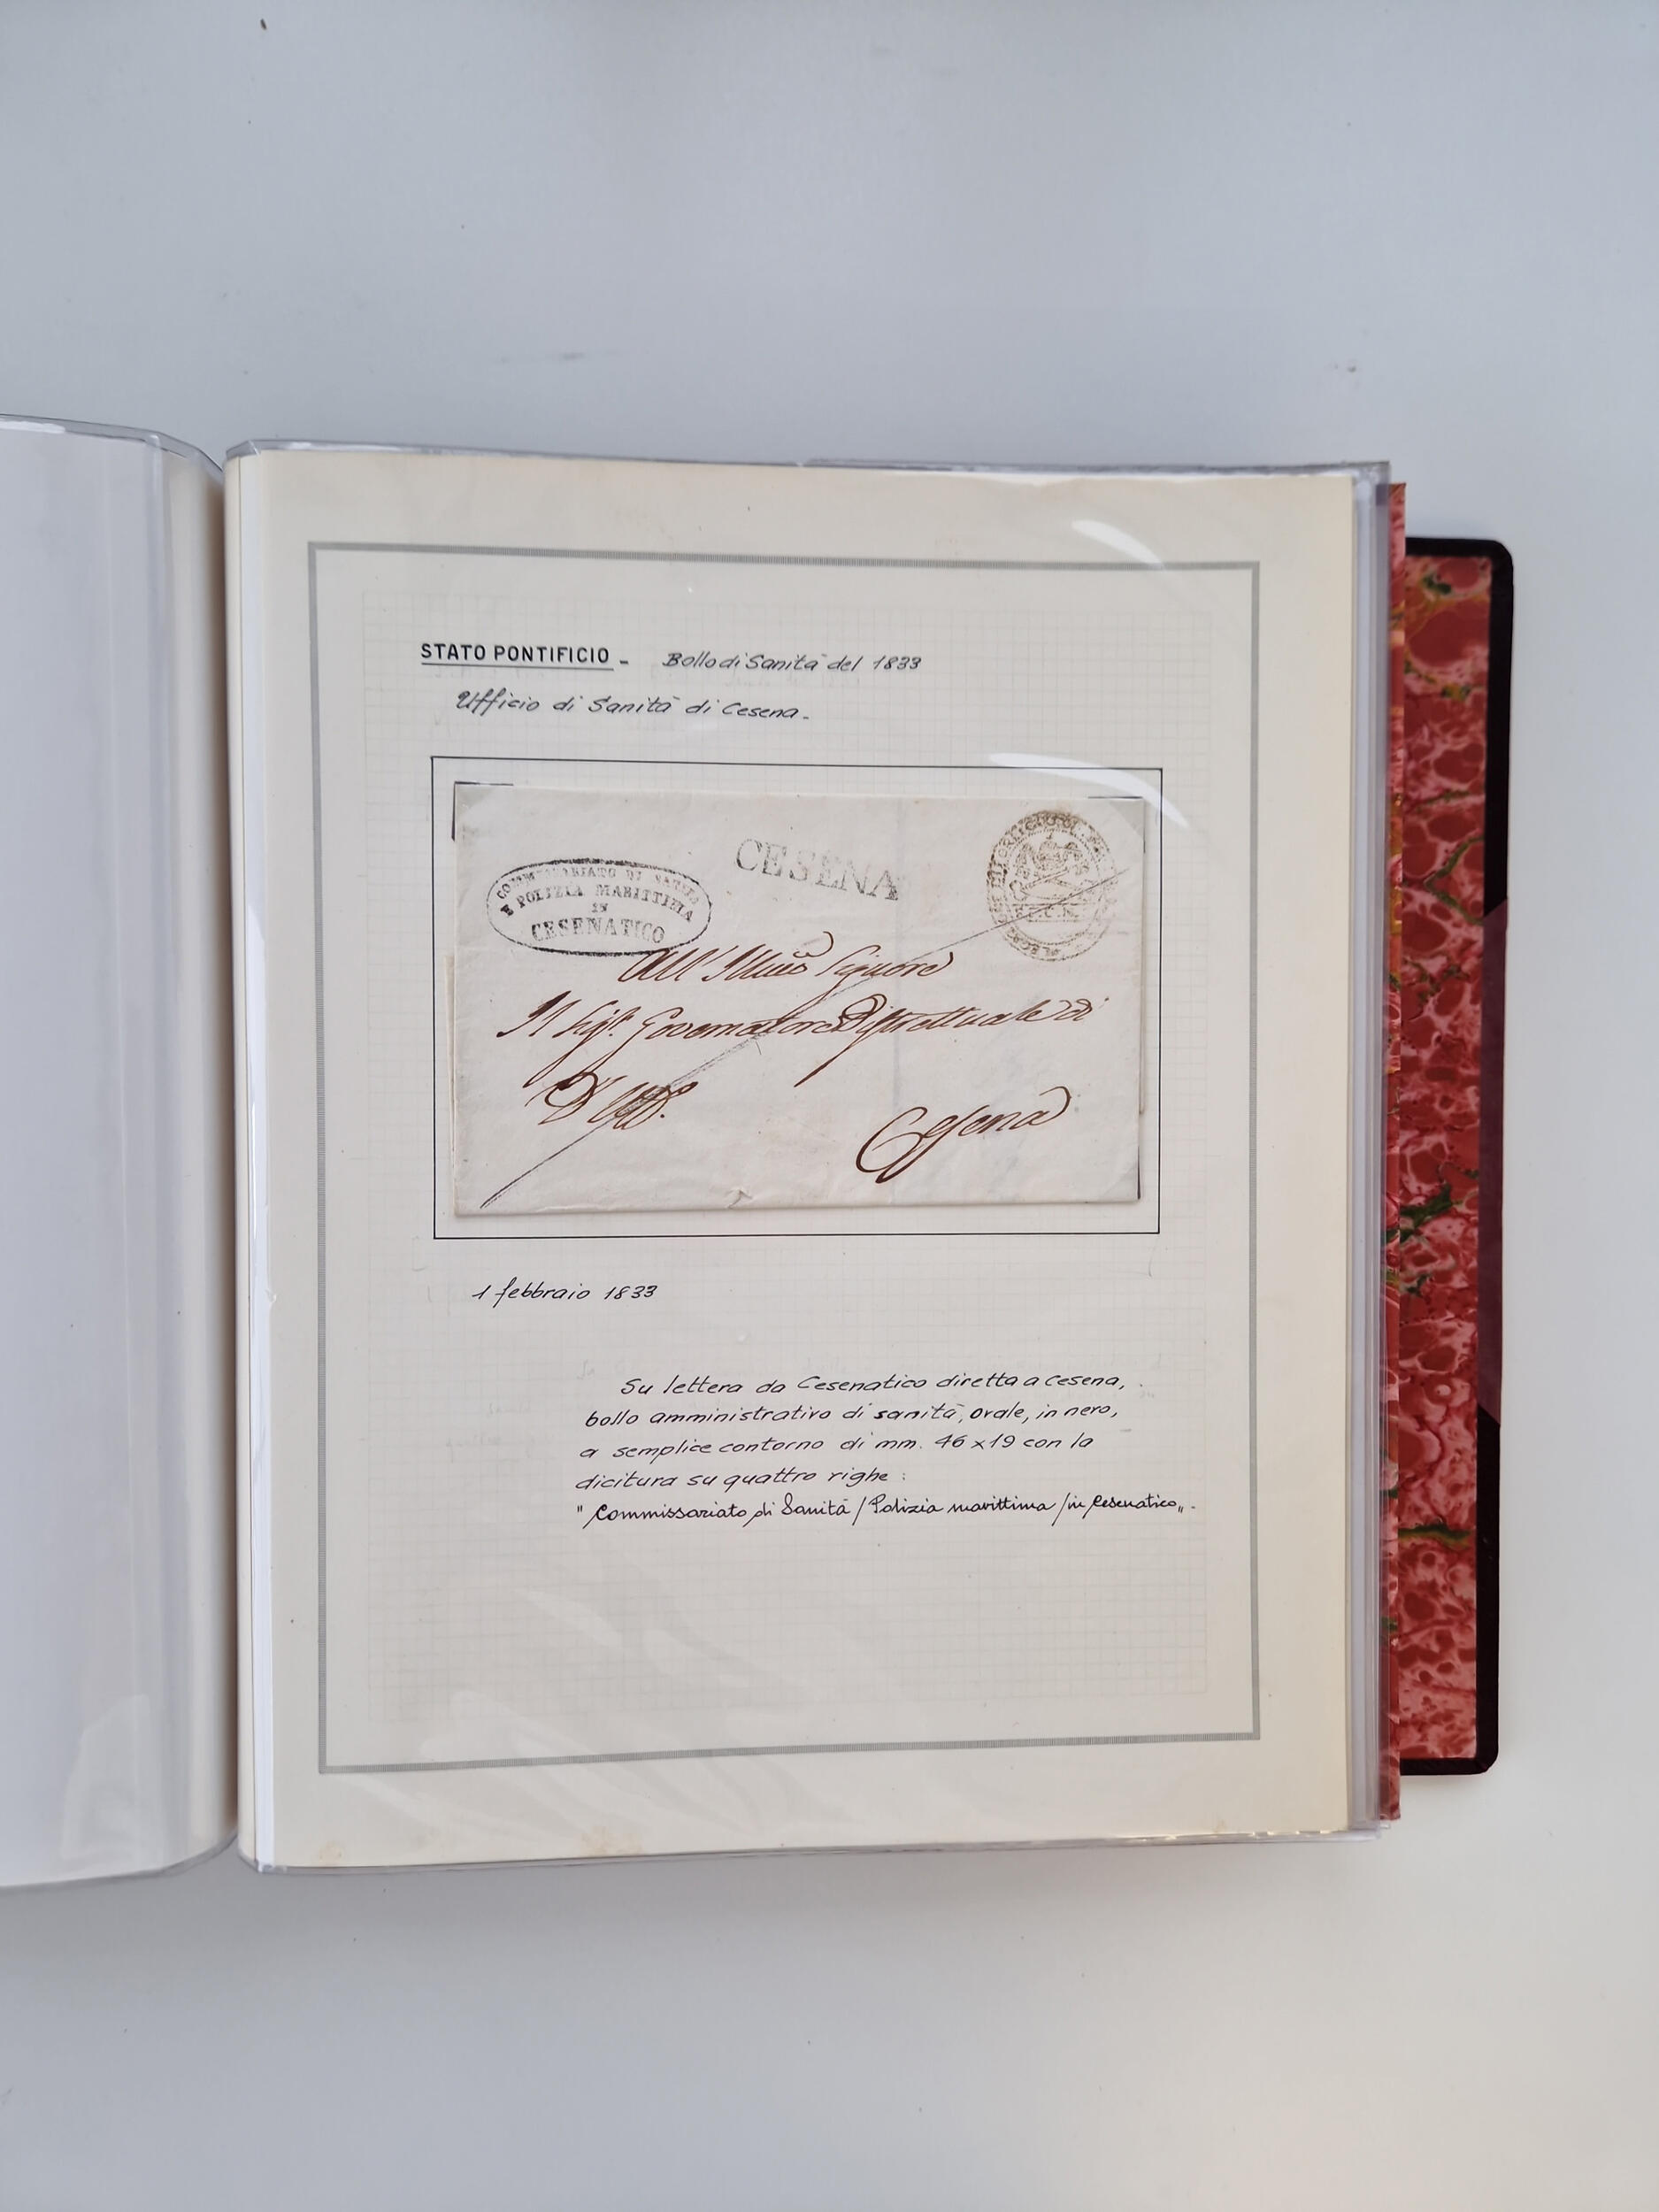 STATO PONTIFICIO - Bollo di Sanità del 1833
Ufficio di Sanità di Cesena.
COMMISSARIATO DI SANITÀ
E POLIZIA MARITTIMA
IN
CESENATICO
CESENA
All' Illmo Signore
Il Sigr. Governatore Distrettuale di
Cesena
1 febbraio 1833
Su lettera da Cesenatico diretta a Cesena,
bollo amministrativo di sanità, ovale, in nero,
a semplice contorno di mm. 46 x 19 con la
dicitura su quattro righe :
"Commissariato di Sanità / Polizia marittima / in Cesenatico„.